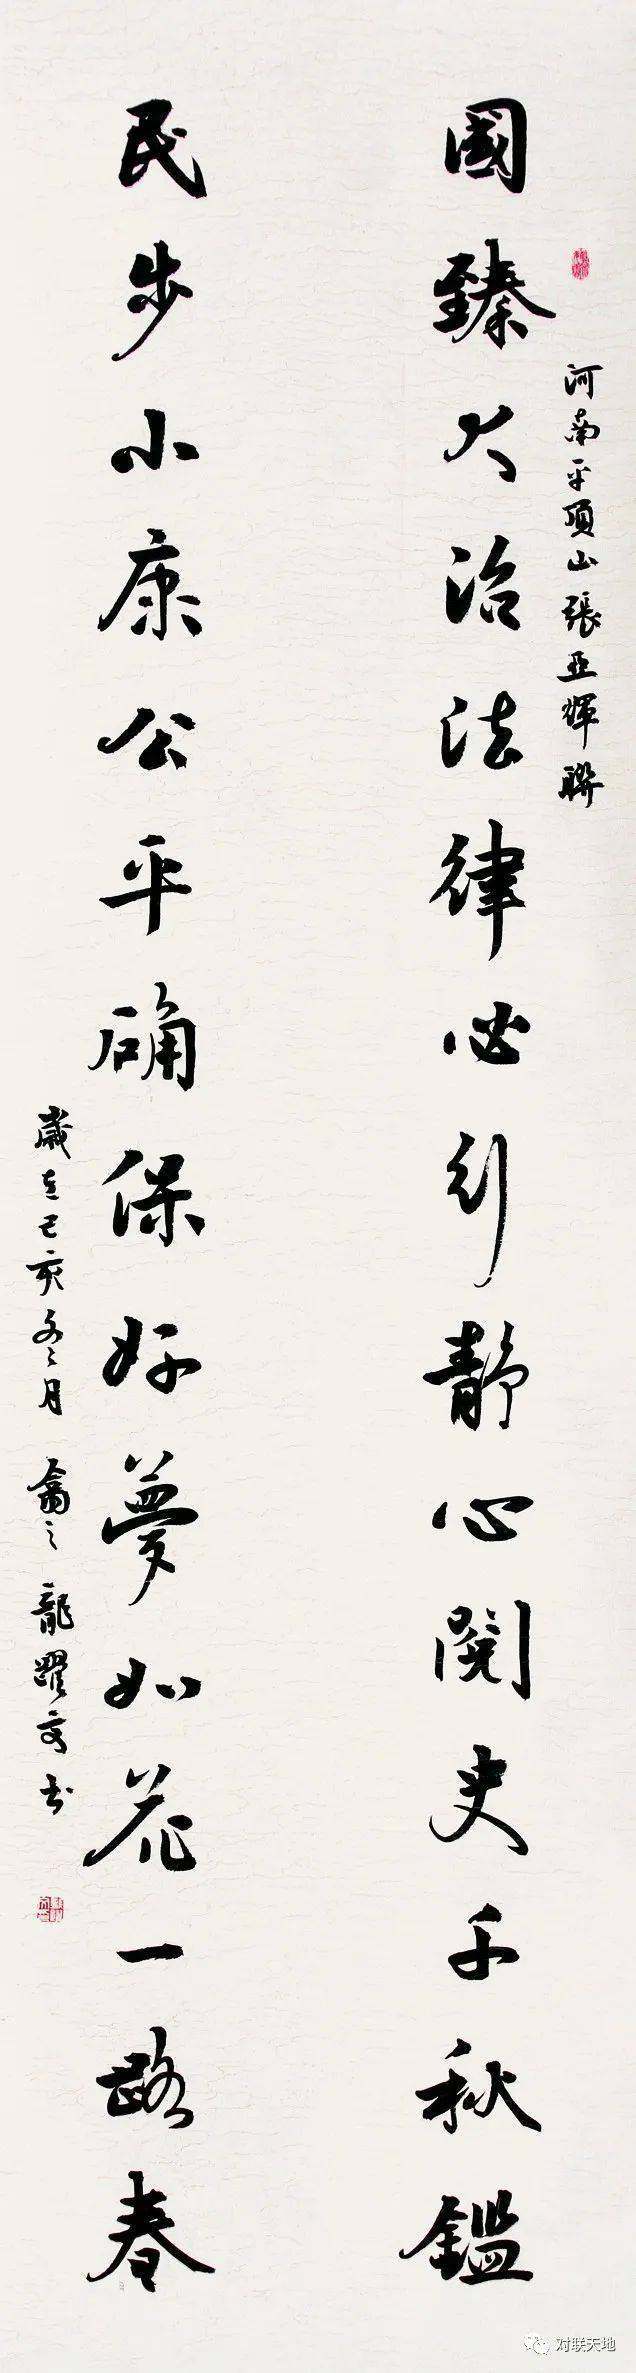 河南平頂山張亞輝聯
國臻大治法律必引靜心閱史千秋鑑
民步小康公平确保好夢如花一路春
歲在己亥冬月 之 龍躍书
对联天地